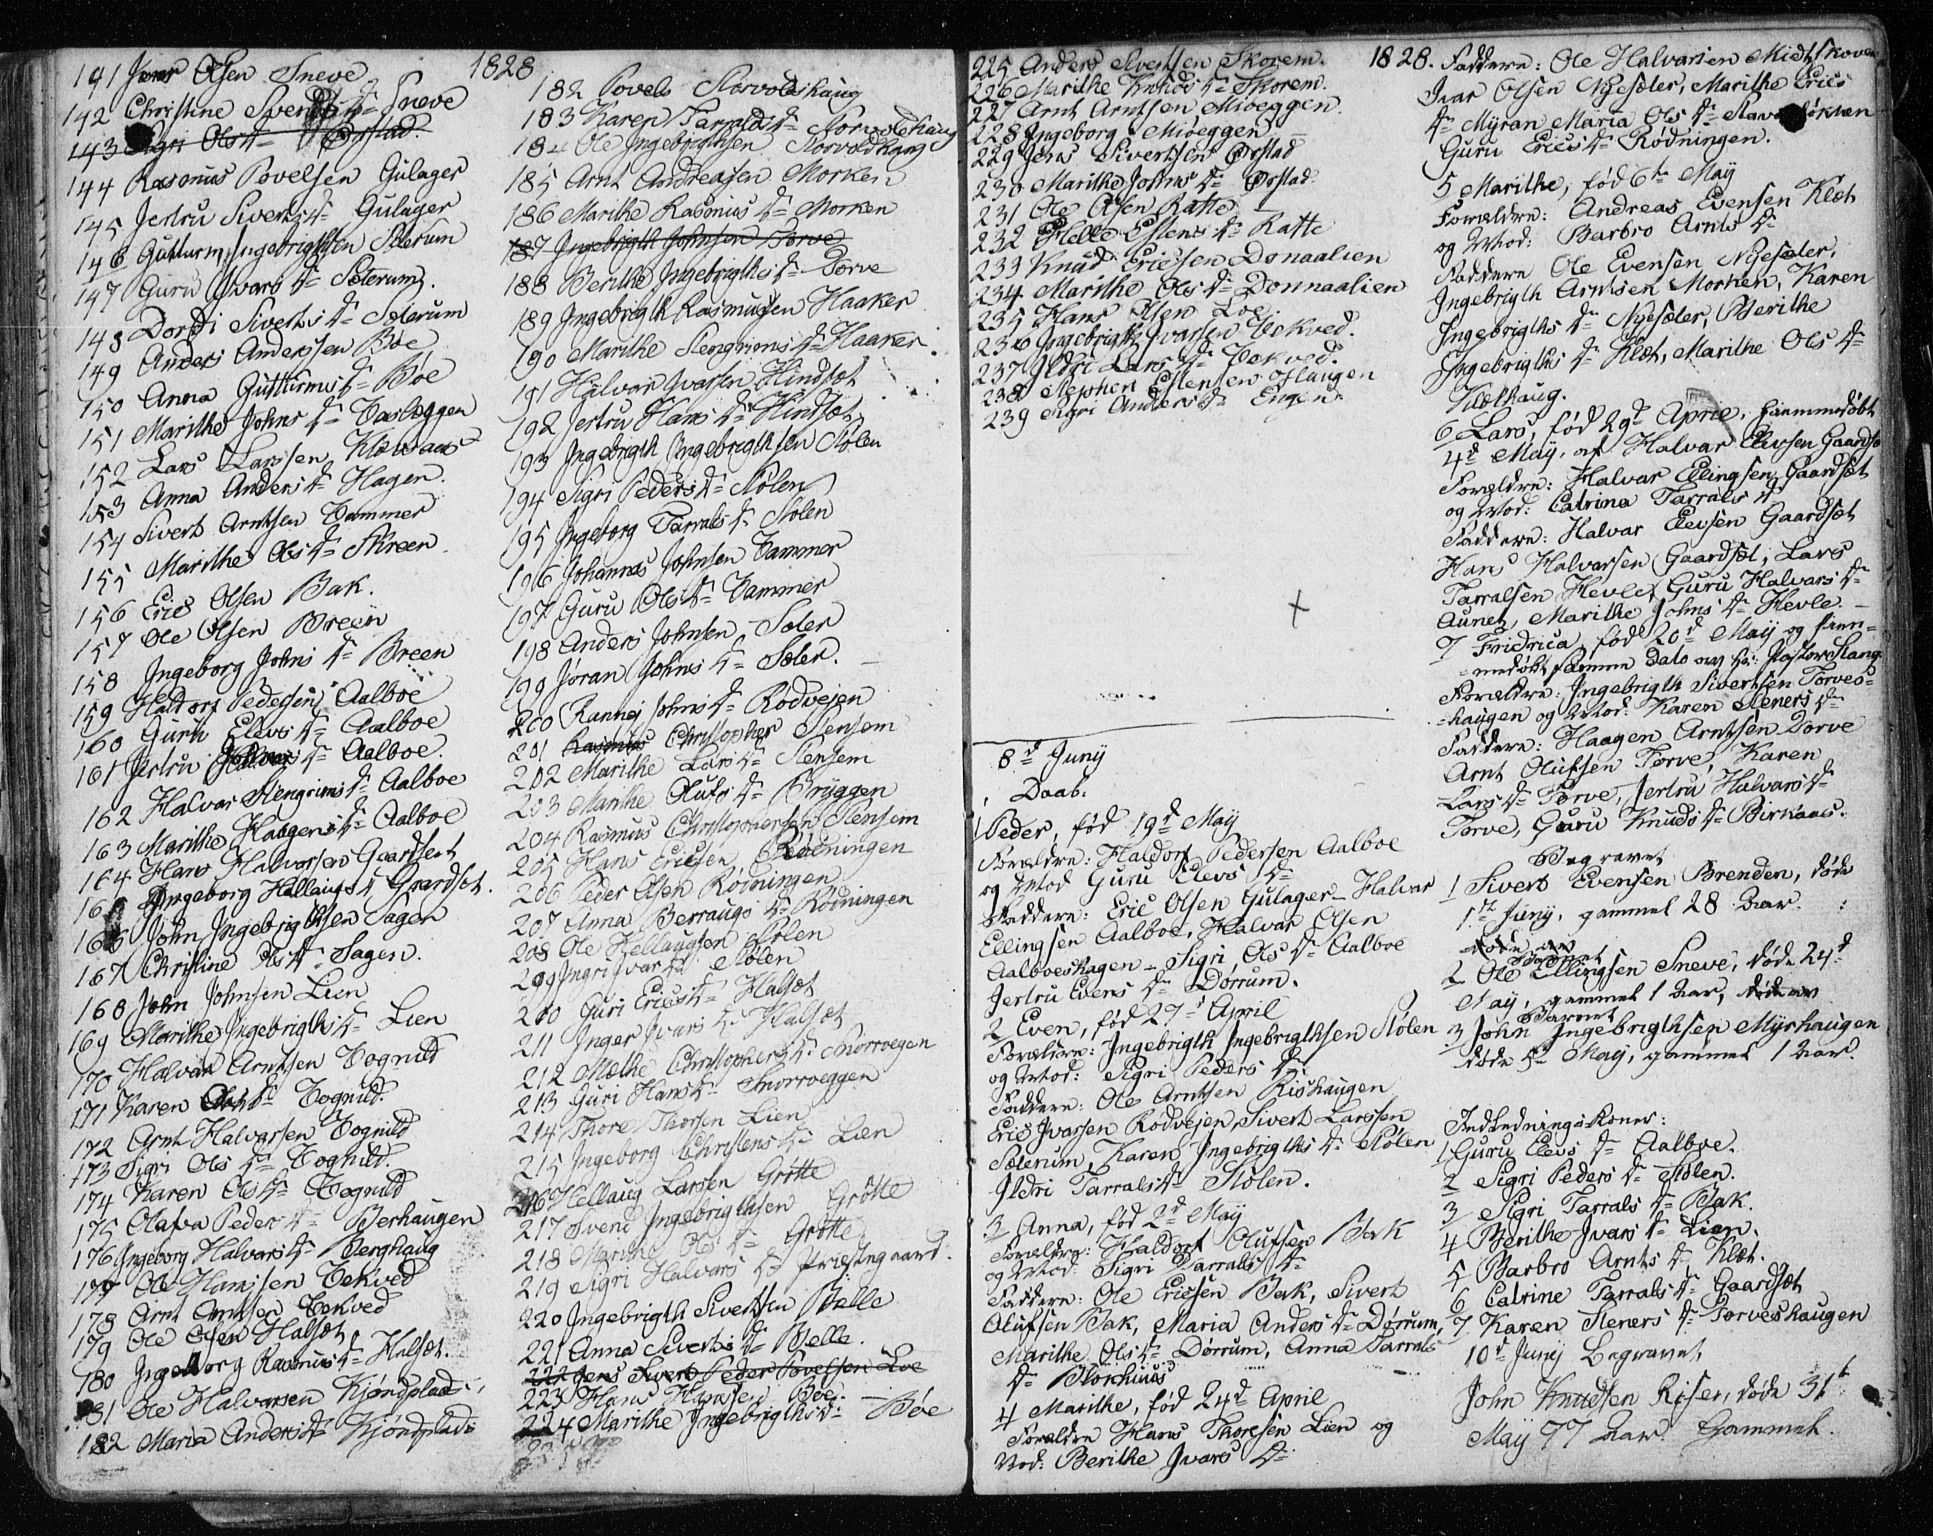 1828
141 Jens Olsen Sneve
142 Christine Siverts Dr Sneve
143 Sigri Ols Dr Ørstad.
144 Rasmus Povelsen Gulager
145 Jertru Siverts Dr Gulager
146 Gutturm Ingebrigthsen Sæterum
147 Guru Ivars Dr Sæterum.
148 Dordi Siverts Dr Sæterum
149 Anders Andersen Bøe
150 Anna Gutturms Dr Bøe
151 Marithe Johns Dr Vasleggen
152 Lars Larssen
153 Anna Anders Dr Hagen.
154 Sivert Arntsen Vammer
155 Marithe Ols Dr Skreen.
156 Eric Olsen Bak.
157 Ole Olsen Breen
158 Ingeborg Johns Dr Breen
159 Haldorf Pedersen Aalboe
160 Guru Elevs Dr Aalboe
161 Jertru Dr Aalboe.
162 Halvar Stengrims Dr Aalboe
163 Marithe Haagens Dr Aalboe
164 Hans Halvorsen Gaardset
165 Ingeborg Hallaugs Dr Gaardset.
166 John Ingebrigthsen Sagen
167 Christine Ols Dr Sagen.
168 John Johnsen Lien
169 Marithe Ingebrigths Dr Lien
170 Halvar Arntsen Vognild
171 Karen Dr Vognild.
172 Arnt Halvarsen Vognild
173 Sigri Ols Dr Vognild.
174 Karen Ols Dr Vognild
175 Olava Peders Dr Berhaugen
176 Ingeborg Halvars Dr Berghaug
177 Ole Hansen Vekved
178 Arnt Arntsen Vekved
179 Ole Olsen Halsæt
180 Ingeborg Rasmus Dr Halsæt.
181 Ole Halvarsen Kjøndplads
182 Maria Anders Dr Kjøndplads
182 Povels Storvoldhaug
183 Karen Tarralds Dr Storvoldhaug
184 Ole Ingebrigthsen Storvoldhaug
185 Arnt Andreasen Morken
186 Marithe Rasmus Dr Morken
187 Ingebrigth Johnsen Torve
188 Berithe Ingebrigths Dr Torve
189 Ingebrigth Rasmussen Haaker
190 Marithe Stengrims Dr Haaker.
191 Halvar Ivarsen Hindsæt
192 Jertru Hans Dr Hindsæt
193 Ingebrigth Ingebrigthsen Stølen
194 Sigri Peders Dr Stølen
195 Ingeborg Tarrals Dr Stolen
196 Johannes Johnsen Vammer
197 Guru Ols Dr Vammer
198 Anders Johnsen Sæter
199 Jøran Johns Dr Sæter.
200 Rannej Johns Dr Rodvejen
201 Rasmus Christopher Stensem
202 Marithe Lars Dr Stensem
203 Marithe Olufs Dr Bryggen
204 Rasmus Christophersen Stensem
205 Hans Ericsen Rødningen
206 Peder Olsen Rødningen
207 Anna Berraugs Dr Rødningen
208 Ole Hellaugsen Stolen
209 Ingri Ivars Dr Stølen
210 Guri Erics Dr Halsæt
211 Inger Ivars Dr Halsæt
212 Malthe Christophers Dr Snorrvegen
213 Guri Hans Dr Snorrveggen
214 Thore Thorsen Lien
215 Ingeborg Christens Dr Lien
216 Hellaug Larsen Grøtte
217 Svend Ingebrigthsen Grøtte
218 Marithe Ols Dr Grøtte
219 Sigri Halvars Dr Priestegaard.
220 Ingebrigth Sivertsen Bjelle
221 Anna Siverts Dr Bjelle.
222 Jens Sivert Peder Povelsen Loe
223 Hans Hansen Bøe.
224 Marithe Ingebrigths Dr Bøe
1828.
225 Anders Sivertsen Skorem.
226 Marithe Knuds Dr Skorem.
227 Arnt Arntsen Mioeggen.
228 Ingeborg Mioeggen.
229 Jens Sivertsen Ørstad
230 Marithe Johns Dr Ørstad.
231 Ole Olsen Ratte
232 Estens Dr Ratte
233 Knud Ericsen Donaalien
234 Marithe Ols Dr Donnaalien
235 Hans Olsen Loe
236 Ingebrigth Ivarsen Vekved.
237 Ildri Lars Dr Vekved.
238 Stephen Estensen Haugen
239 Sigri Anders Dr Engen
8d Juny
Daab.
1 Peder, fød 19d May
Forældre: Haldorf Pedersen Aalboe
og Mod Guru Elevs Dr
Faddere: Eric Olsen Gulager - Halvar
Ellingsen Aalboe, Halvar Olsen
Aalboeshagen - Sigri Ols Dr Aalboe
Jertru Evens Dr Dørrum.
2 Even, fød 27d April
Forældre: Ingebrigth Ingebrigthsen Stølen
og Mod: Sigri Peders Dr
Faddere: Ole Arntsen Rishaugen
Eric Ivarsen Rodvejen Sivert Larssen
Sæterum, Karen Ingebrigths Dr Stølen
Ildri Tarrals Dr Stølen.
3 Anna, fød 2d May
Forældre: Haldorf Olufsen Bak
og Mod: Sigri Tarrals Dr
Faddere: Ole Ericsen Bak, Sivert
Olufsen Bak, Maria Anders Dr Dørrum,
Marithe Ols Dr Dørrum, Anna Tarrals
Dr Blokhuus
4 Marithe, fød 24d April
Forældre Hans Thoresen Lien og
Mod: Berithe Ivars Dr
Faddere: Ole Halvarsen Midtskoven
Ivar Olsen Nyesæter, Marithe Erics
Dr Myran Maria Ols Dr
Guru Erics Dr Rødningen.
5 Marithe, fød 6te May
Forældre: Andreas Evensen Klæt
og Mod: Barbro Arnts Dr
Faddere Ole Evensen Nyesæter,
Ingebrigth Arntsen Morken, Karen
Ingebrigths Dr Nyesæter, Berithe
Ingebrigths Dr Klæt, Marithe Ols Dr
Klæthaug.
6 Lars, fød 29d April, hjemmedøbt
4d May, af Halvar Elevsen Gaardsæt
Forældre: Halvar Ellingsen Gaardsæt
og Mod: Catrina Tarrals Dr
Faddere: Halvar Elevsen Gaardsæt
Hans Halvarsen Gaardsæt, Lars
Tarralsen Hevle, Guru Halvars Dr
Aunet, Marithe Johns Dr Hevle.
7 Fridrica, fød 20d May og hiem-
medøbt samme Dato av Hr: Pastor Stang
Forældre: Ingebrigth Sivertsen Torves-
haugen og Mod: Karen Steners Dr
Faddere: Haagen Arntsen Torve
Arnt Olufsen Torve, Karen
Lars Dr Torve, Jertru Halvars Dr
Torve, Guru Knuds Dr Birkaas.
Begravet
1 Sivert Evensen Brenden, døde
1ste Juny, gammel 28 Aar.
2 Ole Ellingsen Sneve, døde 24d
May, gammel 1 Aar,
Barnet
3 John Ingebrigthsen Myrhaugen
døde 5te May, gammel 1 Aar.
Indledningskoner:
1 Guru Elevs Dr Aalboe.
2 Sigri Peders Dr Stølen.
3 Sigri Tarrals Dr Bak.
4 Berithe Ivars Dr Lien.
5 Barbro Arnts Dr Klæt.
6 Catrine Tarrals Dr Gaardsæt
7 Karen Steners Dr Torveshaugen
10d Junij Begravet
John Knudsen Riser, døde 31te
May 77 Aar Gammel.